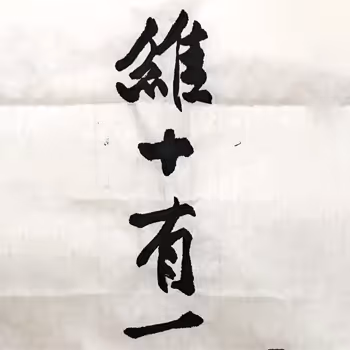 維十有一